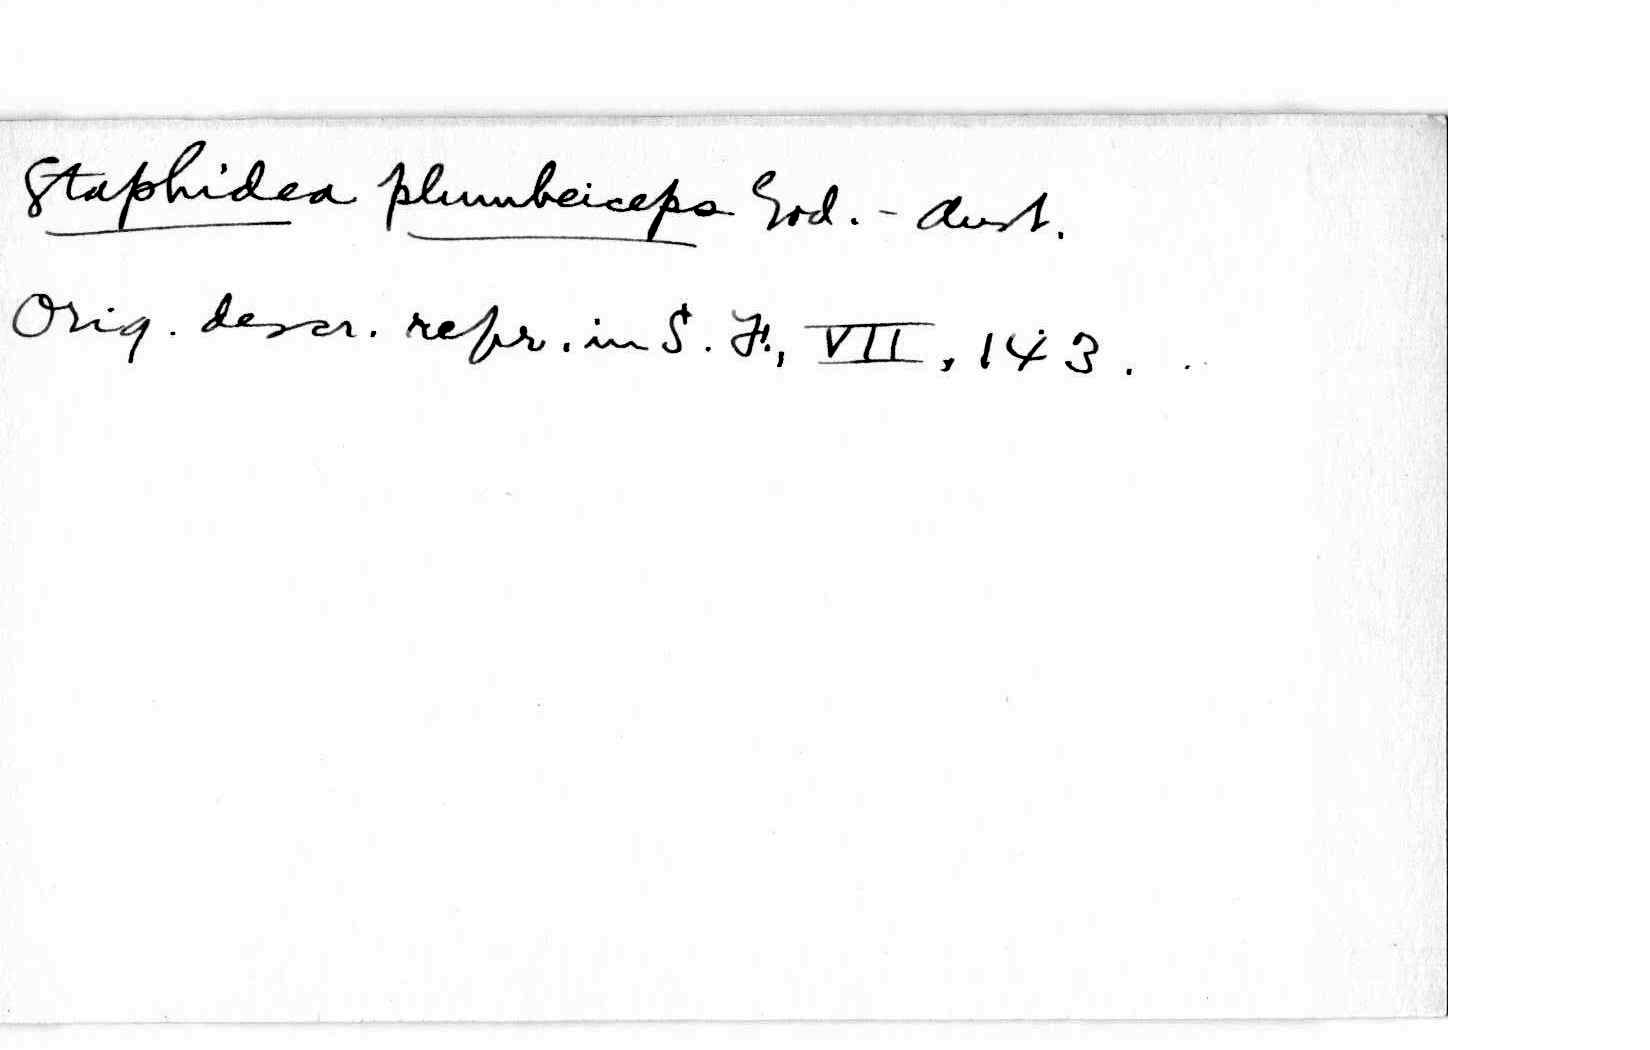 Staphidea plumbeiceps God.-Aust.
Orig. descr. repr. in S. F., VII, 143.